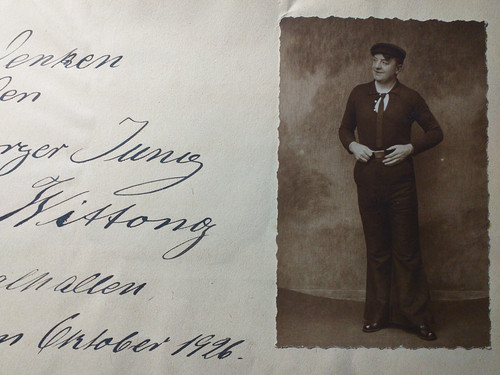 denken
den
rzer Jung
Wittong
alhallen
n Oktober 1926.